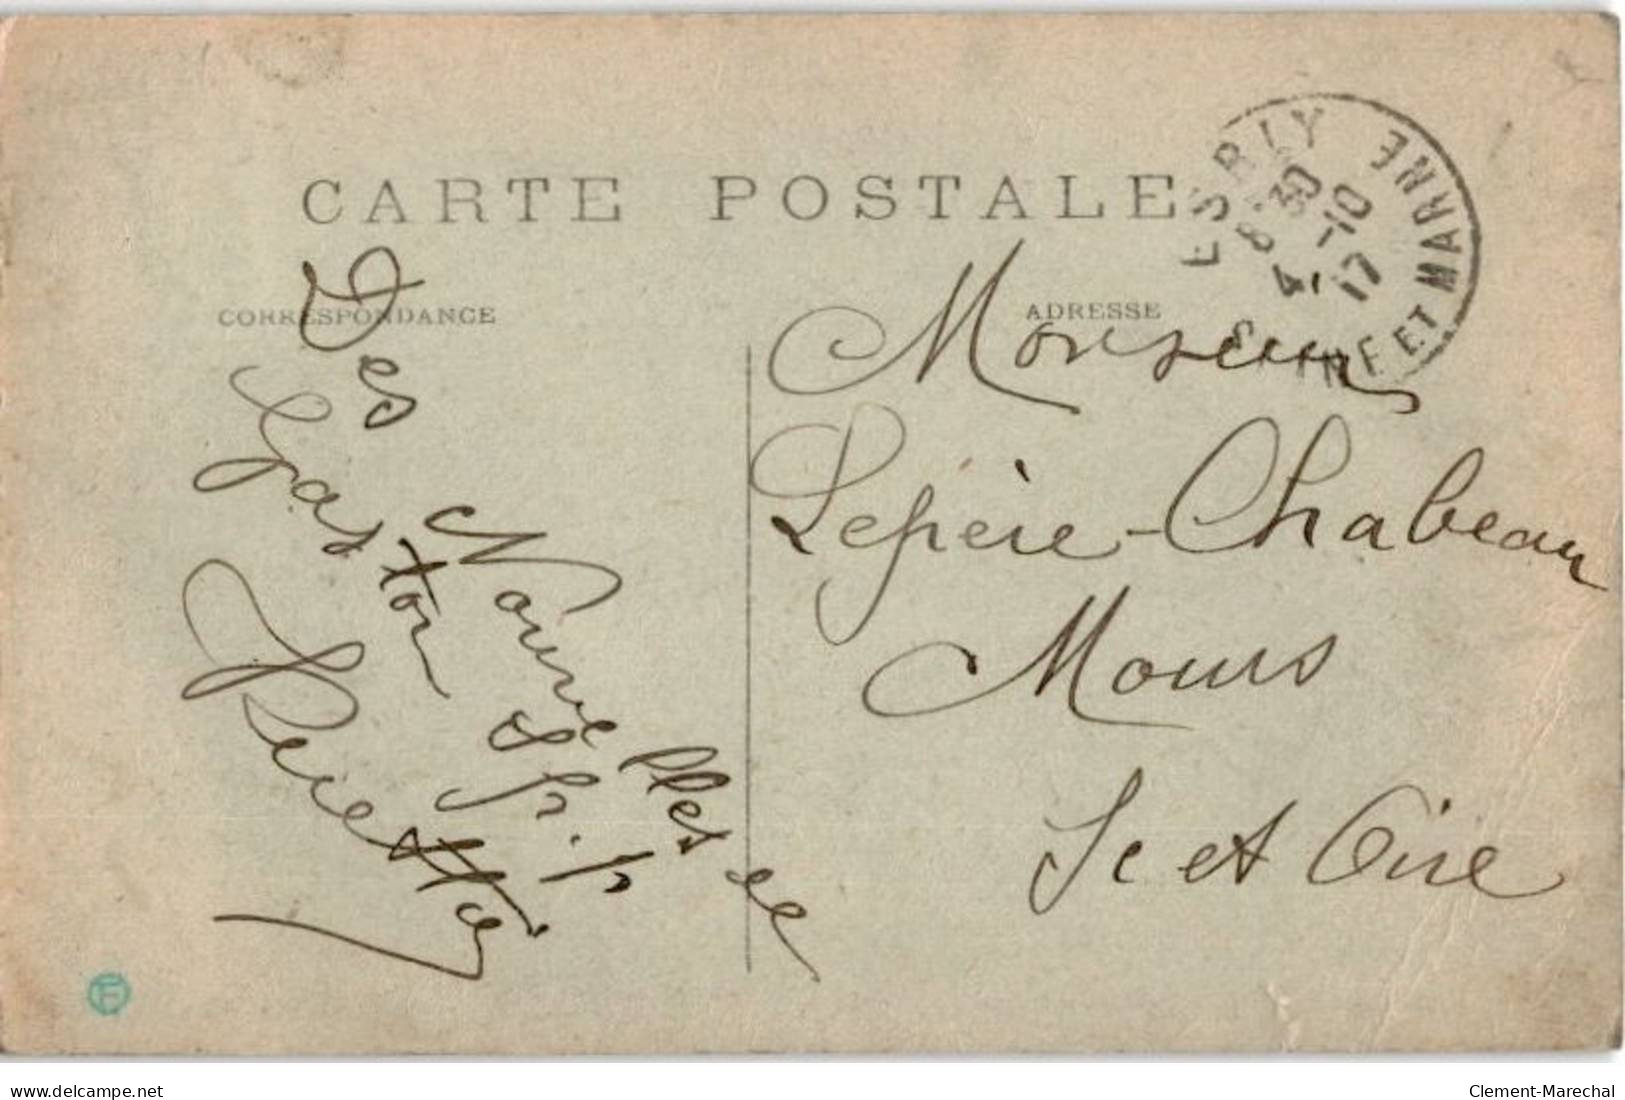 CARTE POSTALE
CORRESPONDANCE
ADRESSE
ESBLY
8*30
4-10
17
SEINE ET MARNE
Des Nouvelles de
Gaston
Monsieur
Lepère-Chabeau
Mours
Se et Oise
delcampe.net
Clement-Marechal